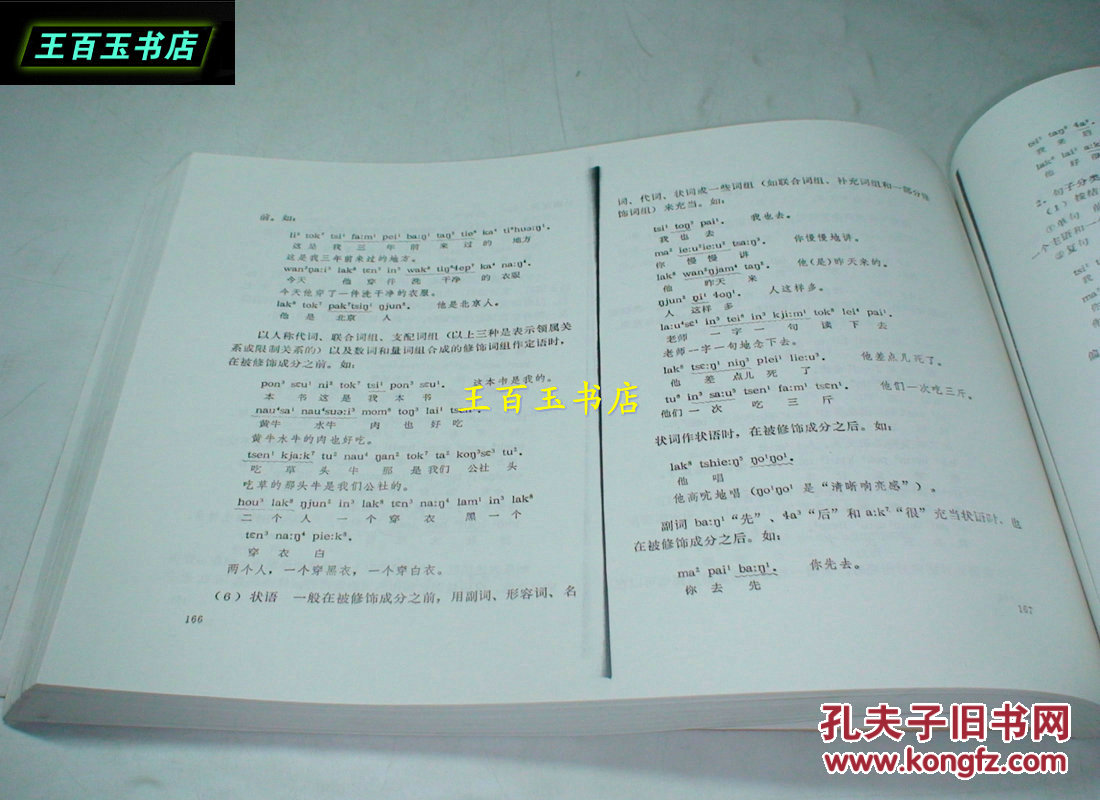 王百玉书店
前。如：
这 是 我 三 年 前 来 过 的 地方
这是我三年前来过的地方。
今天 他 穿 件 洗 干净 的 衣服
今天他穿了一件洗干净的衣服。
lak⁸ tok⁷ pak⁷tsiŋ¹ ŋjun². 他是北京人。
他 是 北京 人
以人称代词、联合词组、支配词组（以上三种是表示领属关
系或限制关系的）以及数词和量词组合成的修饰词组作定语时，
在被修饰成分之前。如：
pon³ sɛu¹ ni² tok⁷ tsi¹ pon³ sɛu¹. 这本书是我的。
本 书 这 是 我 本 书
王百玉书店
黄牛 水牛 肉 也 好 吃
黄牛水牛的肉也好吃。
tsen¹ kja:k⁷ tu² nau⁴ ŋan² tok⁷ ta² koŋ³sɛ³ tu².
吃 草 头 牛 那 是 我们 公社 头
吃草的那头牛是我们公社的。
hou³ lak⁸ ŋjun² in³ lak⁸ tɛn³ na:ŋ⁴ lam¹ in³ lak⁸
二 个 人 一 个 穿 衣 黑 一 个
tɛn³ na:ŋ⁴ pie:k⁸.
穿 衣 白
两个人，一个穿黑衣，一个穿白衣。
（6）状语 一般在被修饰成分之前，用副词、形容词、名
166
词、代词、状词或一些词组（如联合词组、补充词组和一部分修
饰词组）来充当。如：
tsi¹ toŋ² pai¹. 我也去。
我 也 去
ma² ie:u³ie:u² tsa:ŋ³. 你慢慢地讲。
你 慢慢 讲
lak⁸ wan²ŋjam⁴ taŋ². 他（是）昨天来的。
他 昨天 来
人这样多。
人 这样 多
老师 一 字 一 句 读 下 去
老师一字一句地念下去。
lak⁸ tsɛ:ŋ¹ niŋ⁵ plei¹ lie:u³. 他差点儿死了。
他 差 点儿 死 了
tu⁸ in³ sa:u⁵ tsen¹ fa:m¹ tsɛn¹. 他们一次吃三斤。
他们 一 次 吃 三 斤
状词作状语时，在被修饰成分之后。如：
lak⁸ tshie:ŋ⁵ ŋo¹ŋo¹.
他 唱
他高吭地唱（ŋo¹ŋo¹ 是“清晰响亮感”）。
副词 ba:ŋ¹“先”、4a³“后”和 a:k⁷“很”充当状语时，也
在被修饰成分之后。如：
ma² pai¹ ba:ŋ¹. 你先去。
你 去 先
167
我 来 后
2. 句子分类
①单句
②复句
孔夫子旧书网
www.kongfz.com